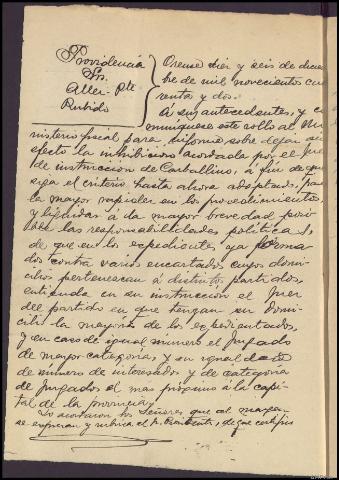 Providencia
Srs.
Aller - Pte
Rubido
Orense diez y seis de diciem
bre de mil novecientos cua
renta y dos.
A sus antecedentes, y co
muníquese este rollo al Mi
nisterio fiscal para informe sobre dejar sin
efecto la inhibición acordada por el Juez
de instrucción de Carballino, á fin de que
siga el criterio hasta ahora adoptado, para
la mayor rapidez en los procedimientos,
y liquidar á la mayor brevedad posi
ble las responsabilidades políticas,
de que en los expedientes ya forma
dos contra varios encartados cuyos domi
cilios pertenezcan á distintos partidos,
entienda en su instrucción el Juez
del partido en que tengan su domi
cilio la mayoría de los expedientados,
y en caso de igual numero el Juzgado
de mayor categoria, y en igualdad
de numero de interesados y de categoria
de Juzgados el mas próximo á la capi
tal de la provincia,
Lo acordaron los Señores que al margen
se expresan y rubrica el Sr. Presidente, de que certifico